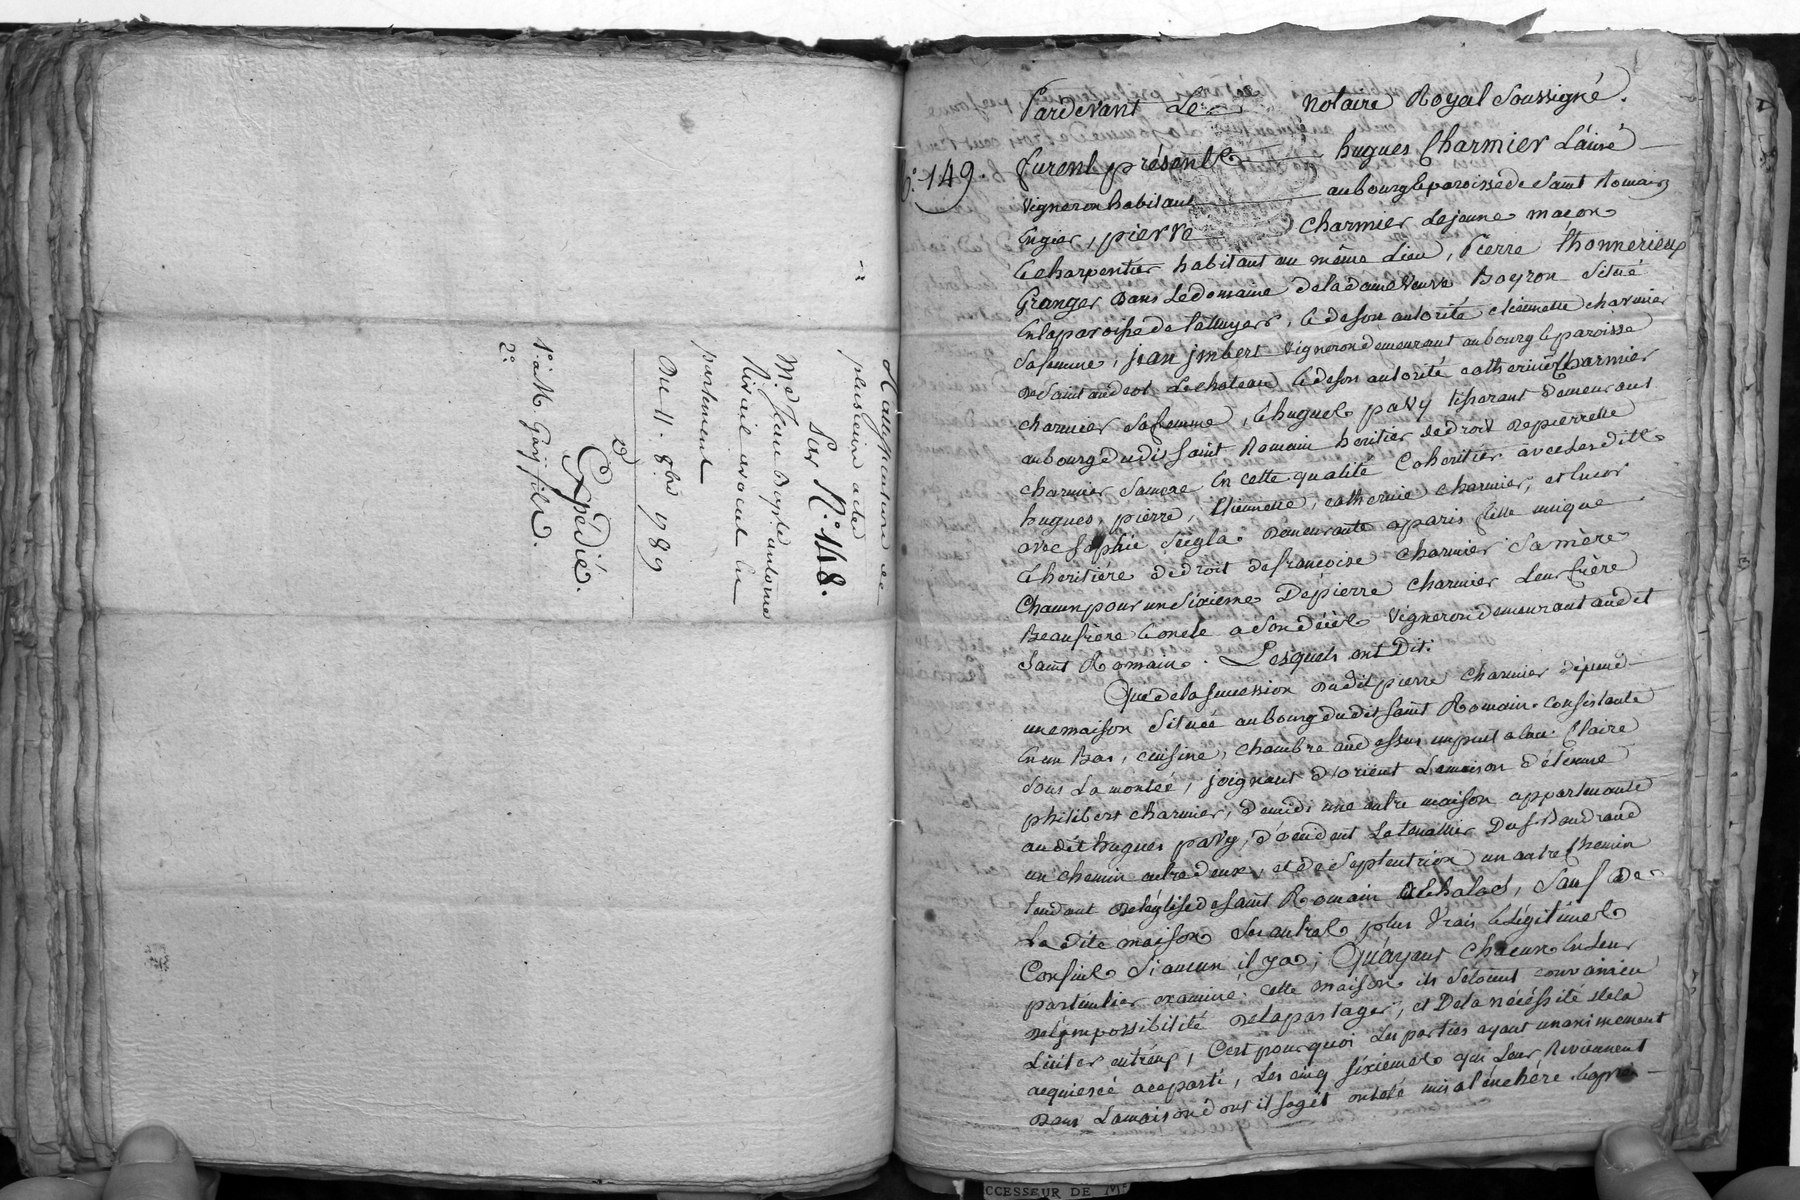 plusieurs actes
Sur N.° 148.
Me Jean Baptiste antoine
avocat en
parlement
Du 11. 8bre 1789
Expédié.
1.° a M. Gouj fils.
2.°
N.° 149.
Pardevant Le notaire Royal Soussigné.
furent présents hugues Charmier L'ainé
Vigneron habitant au bourg & paroisse de Saint Romain
Engier, pierre Charmier Lejeune maçon
& charpentier habitant au même Lieu, Pierre thonnerieux
Granger Dans Le domaine de la dame Veuve Boyron Situé
En la paroisse de , & de son autorité etiennette charmier
Sa femme, jean jmbert Vigneron demeurant au bourg & paroisse
De Saint andeol Le chateau & de son autorité catherine Charmier
charmier Sa femme, & hugues pavy tisserant demeurant
au bourg dudit Saint Romain heritier de droit de pierrette
charmier Sa mere En cette qualité Coheritier avec Lesdits
hugues, pierre, Etiennette, catherine charmier, et encor
avec Sophie Seigla Demeurante a paris fille unique
& heritiére de droit de françoise Charmier Sa mère
Chacun pour un Sixieme De pierre charmier Leur frère
Beaufrère & oncle a Son décès Vigneron demeurant audit
Saint Romain. Lesquels ont Dit.
Que de la Succession dudit pierre charmier dépend
une maison Située au bourg dudit Saint Romain consistante
En un Bas, cuisine, chambre au dessus un puit a eau Claire
Sous La montée, joignant d'orient La maison d'étienne
philibert charmier, de midi une autre maison appartenante
audit hugues pavy, d'occident Le tenallier Du S. Baudrand
un chemin entre deux, et de Septentrion un autre chemin
tendant de l'église de Saint Romain , Sauf De
La dite maison Ses autres plus Vrais & légitimes
Confins Si aucun il y a; Qu'ayant chacun En Leur
particulier examiné cette maison ils Setoient convaincu
De l'jmpossibilité De la partager, et De la nécéssité de la
Liciter entr'eux, C'est pourquoi Les parties ayant unanimement
acquiescé a ce parti, Les cinq sixiemes qui Leur Reviennent
Dans La maison dont il s'agit ont été mis a l'enchére &
CCESSEUR DE Me